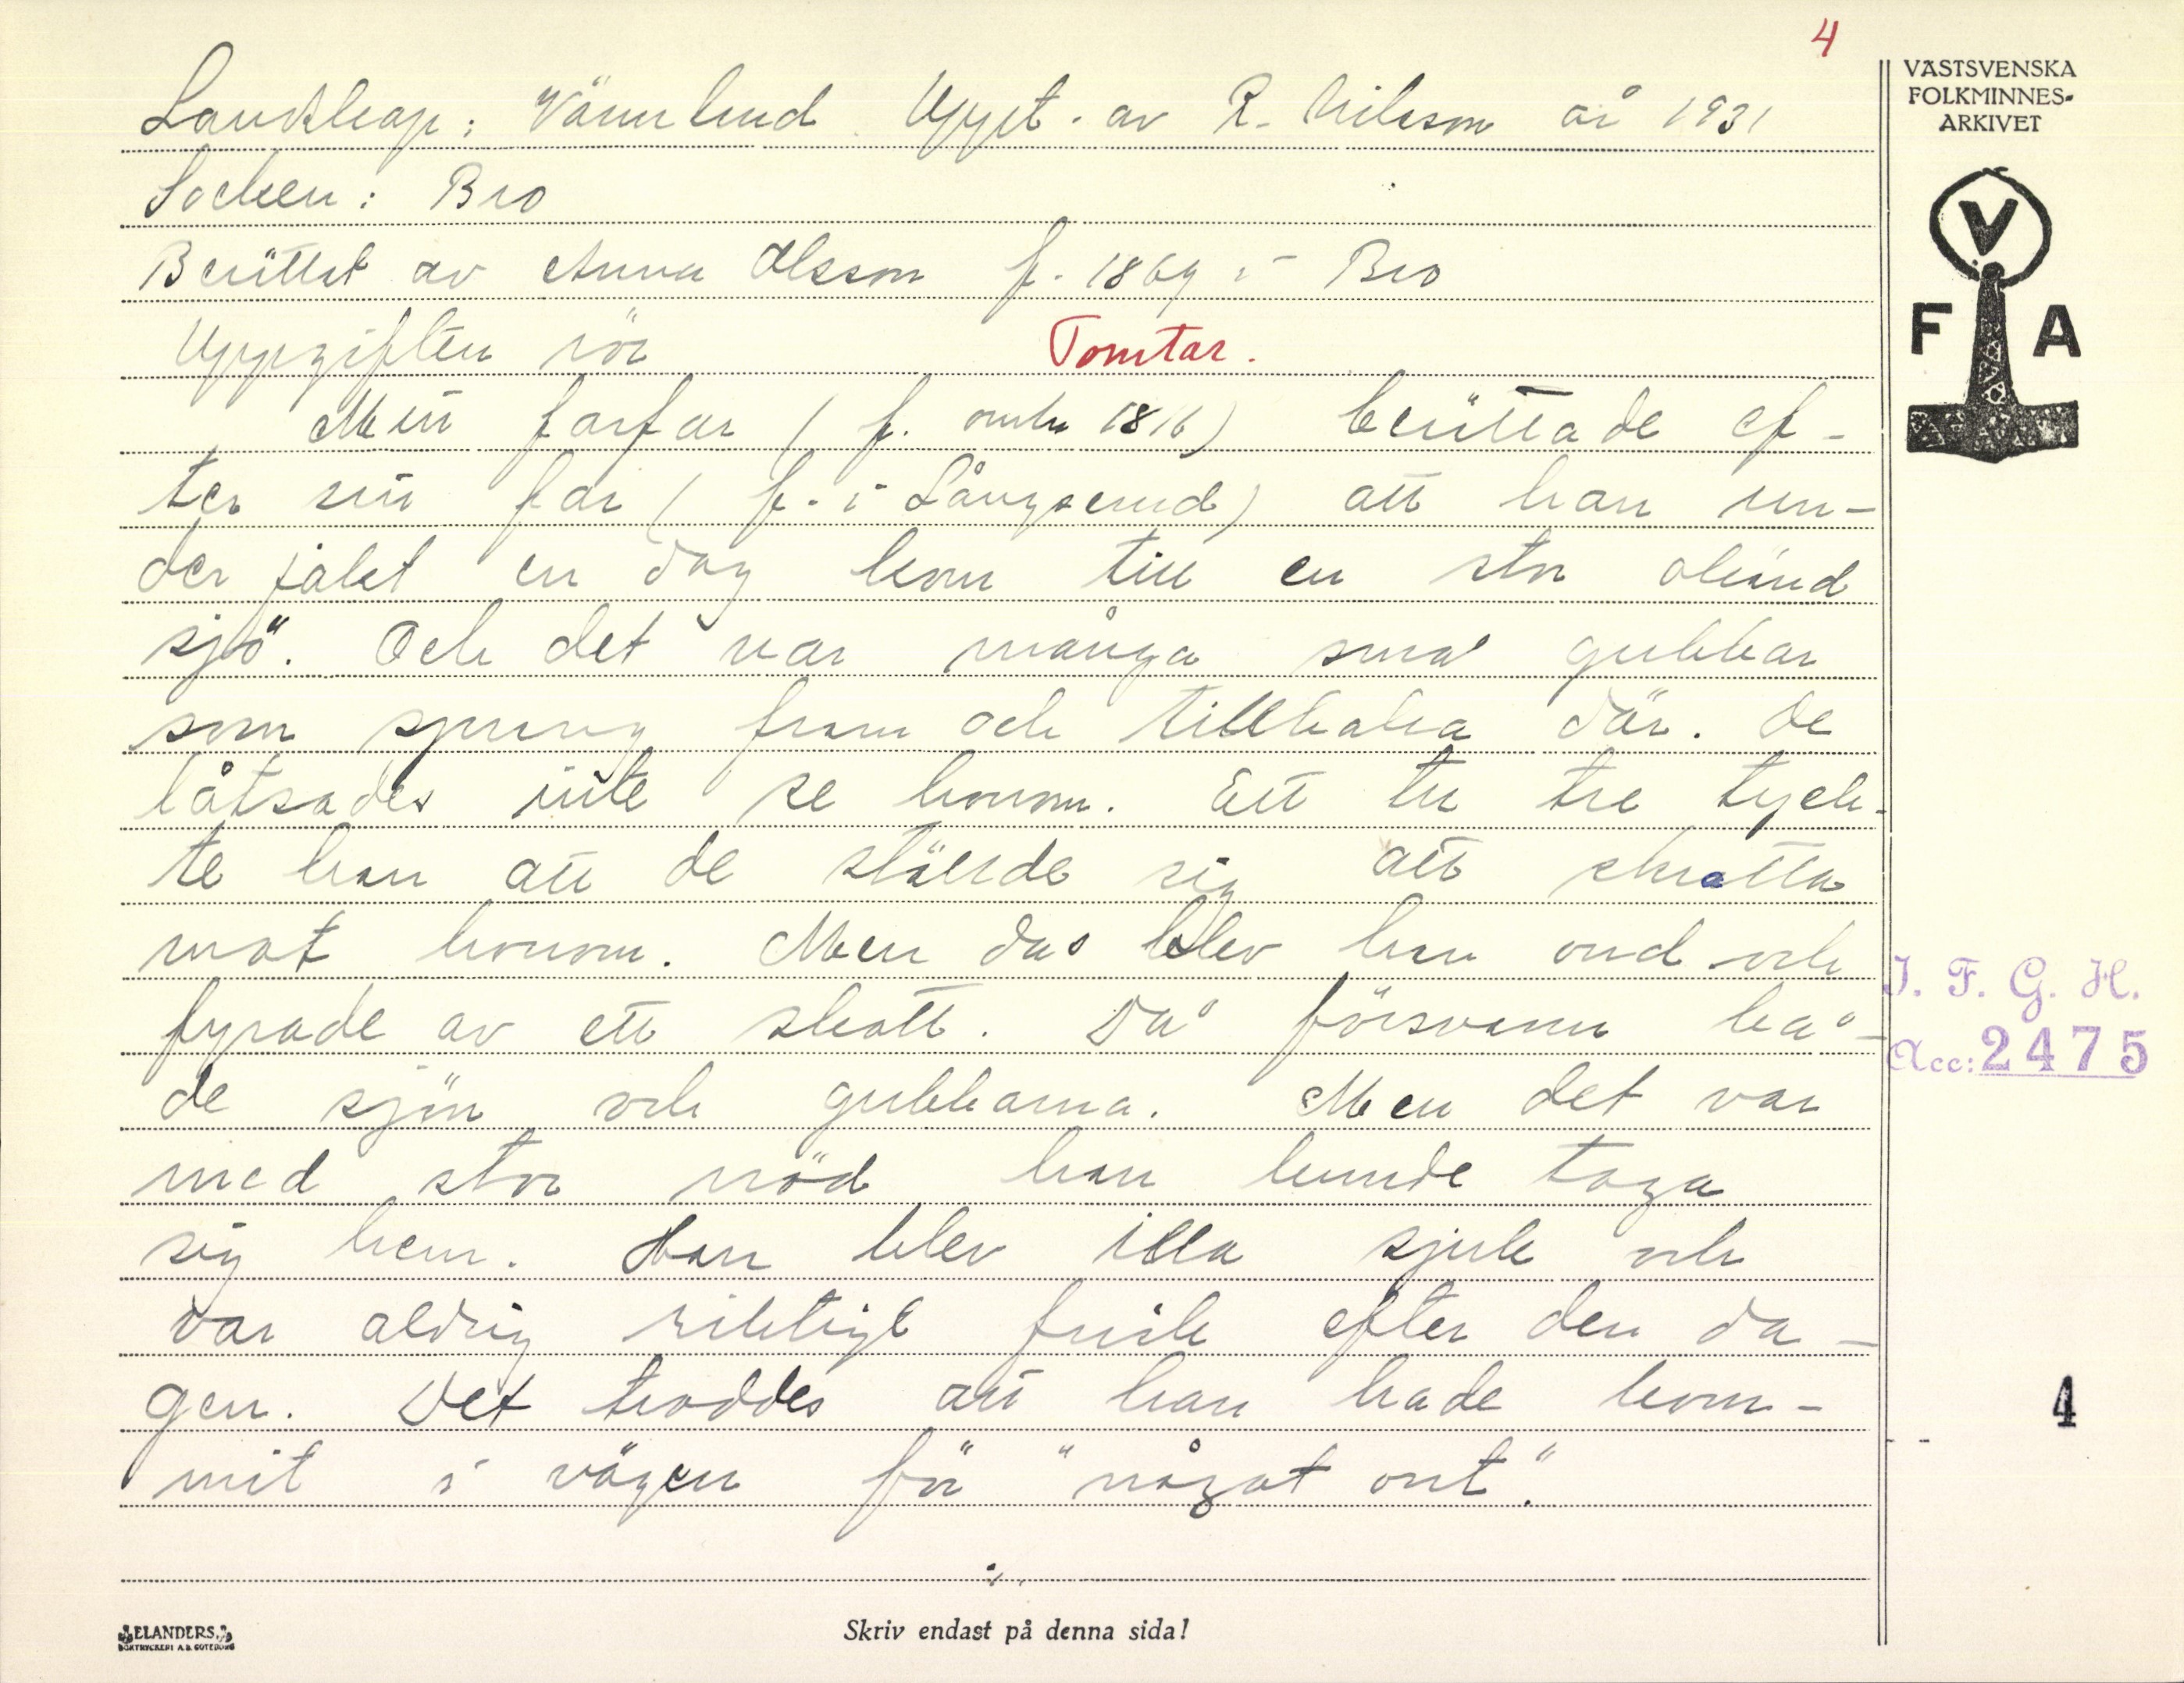 4
VÄSTSVENSKA
FOLKMINNES-
ARKIVET
V
F A
Landskap: Värmland Uppt. av R. Nilsson år 1931
Socken: Bro
Berättat av Anna Olsson f. 1869 i Bro
Uppgiften rör Tomtar.
Min farfar (f. omkr 1816) berättade ef-
ter sin far (f. i Långserud) att han un-
der jakt en dag kom till en stor okänd
sjö. Och det var många små gubbar
som sprang fram och tillbaka där. De
låtsades inte se honom. Ett tu tre tyck-
te han att de ställde sig att skratta
mot honom. Men då blev han ond och
fyrade av ett skott. Då försvann bå-
de sjön och gubbarna. Men det var
med stor nöd han kunde taga
sig hem. Han blev illa sjuk och
var aldrig riktigt frisk efter den da-
gen. Det troddes att han hade kom-
mit i vägen för "något ont".
I. F. G. H.
Acc: 2475
4
ELANDERS
BOKTRYCKERI A.B. GÖTEBORG
Skriv endast på denna sida!